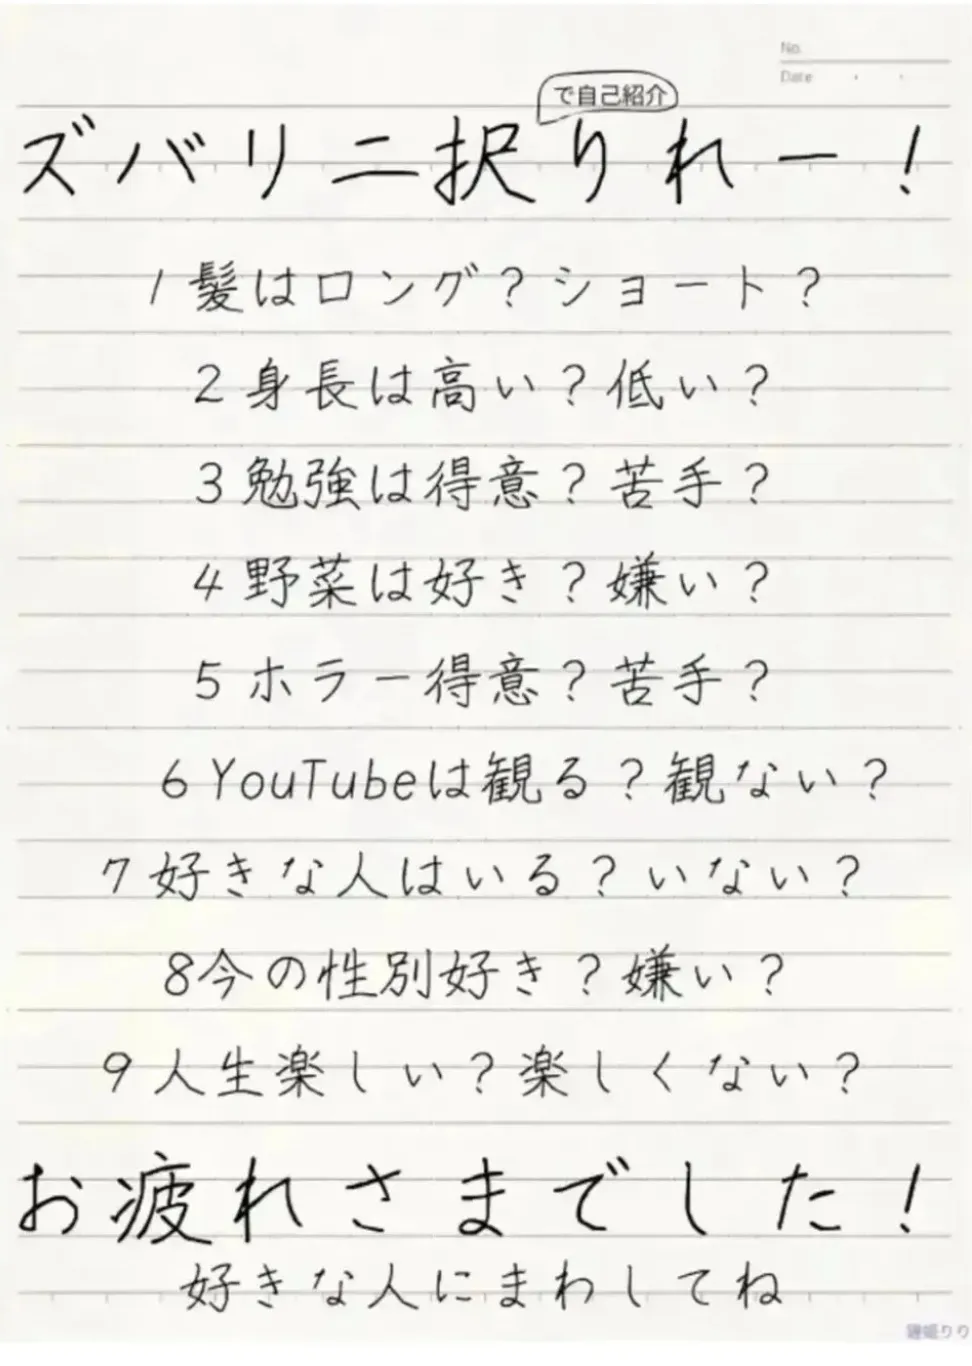 No.
Date
で自己紹介
ズバリ二択りれー！
1 髪はロング？ショート？
2 身長は高い？低い？
3 勉強は得意？苦手？
4 野菜は好き？嫌い？
5 ホラー得意？苦手？
6 YouTubeは観る？観ない？
7 好きな人はいる？いない？
8今の性別好き？嫌い？
9 人生楽しい？楽しくない？
お疲れさまでした！
好きな人にまわしてね